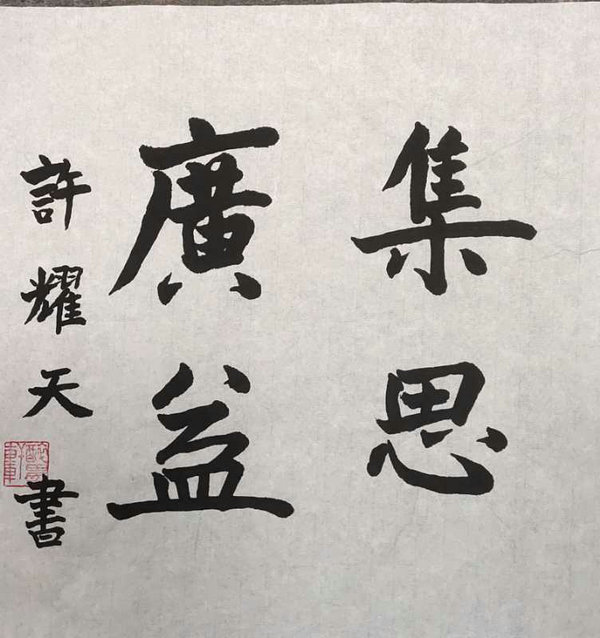 集思
廣益
許耀天書